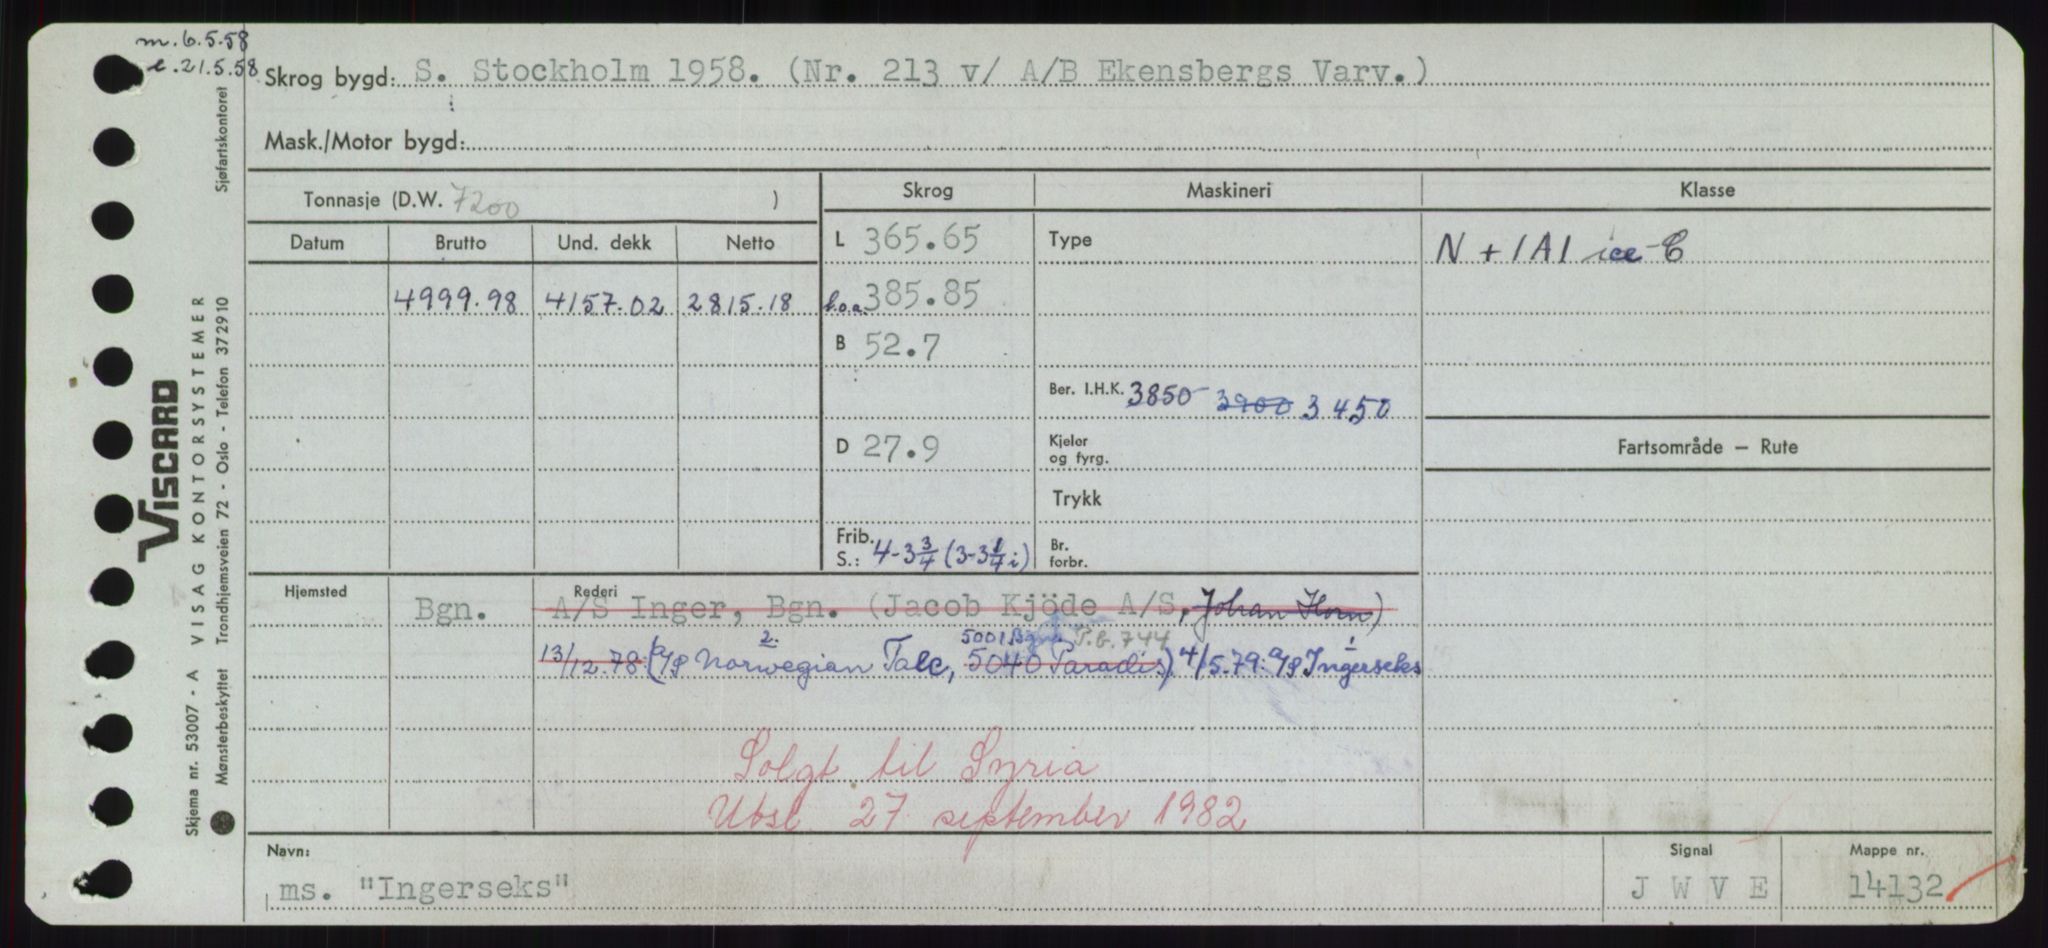 m. 6.5.58
e. 21.5.58
Skrog bygd: S. Stockholm 1958. (Nr. 213 v/ A/B Ekensbergs Varv.)
Mask./Motor bygd:
Tonnasje (D.W. 7200 )
Skrog
Maskineri
Klasse
Datum Brutto Und. dekk Netto
L 365.65
Type
N + 1A1 ice C
4999.98 4157.02 2815.18
l.o.a. 385.85
B 52.7
Ber. I.H.K. 3850 3900 3450
D 27.9
Kjeler
og fyrg.
Fartsområde — Rute
Trykk
Frib.
S.: 4-3 3/4 (3-3 1/4 i)
Br.
forbr.
Hjemsted
Bgn.
Rederi
A/S Inger, Bgn. (Jacob Kjöde A/S, Johan Horn)
2. 5001 Bgn. P.b. 744 1
13/12.78: (A/S Norwegian Talc, 5040 Paradis) 4/5.79: A/S Ingerseks
Solgt til Syria
Utsl. 27 september 1982
Navn:
ms. "Ingerseks"
Signal
J W V E
Mappe nr.
14132
Sjøfartskontoret
VISCARD
VISAG KONTORSYSTEMER
Trondhjemsveien 72 - Oslo - Telefon 372910
Skjema nr. 53007 - A
Mønsterbeskyttet